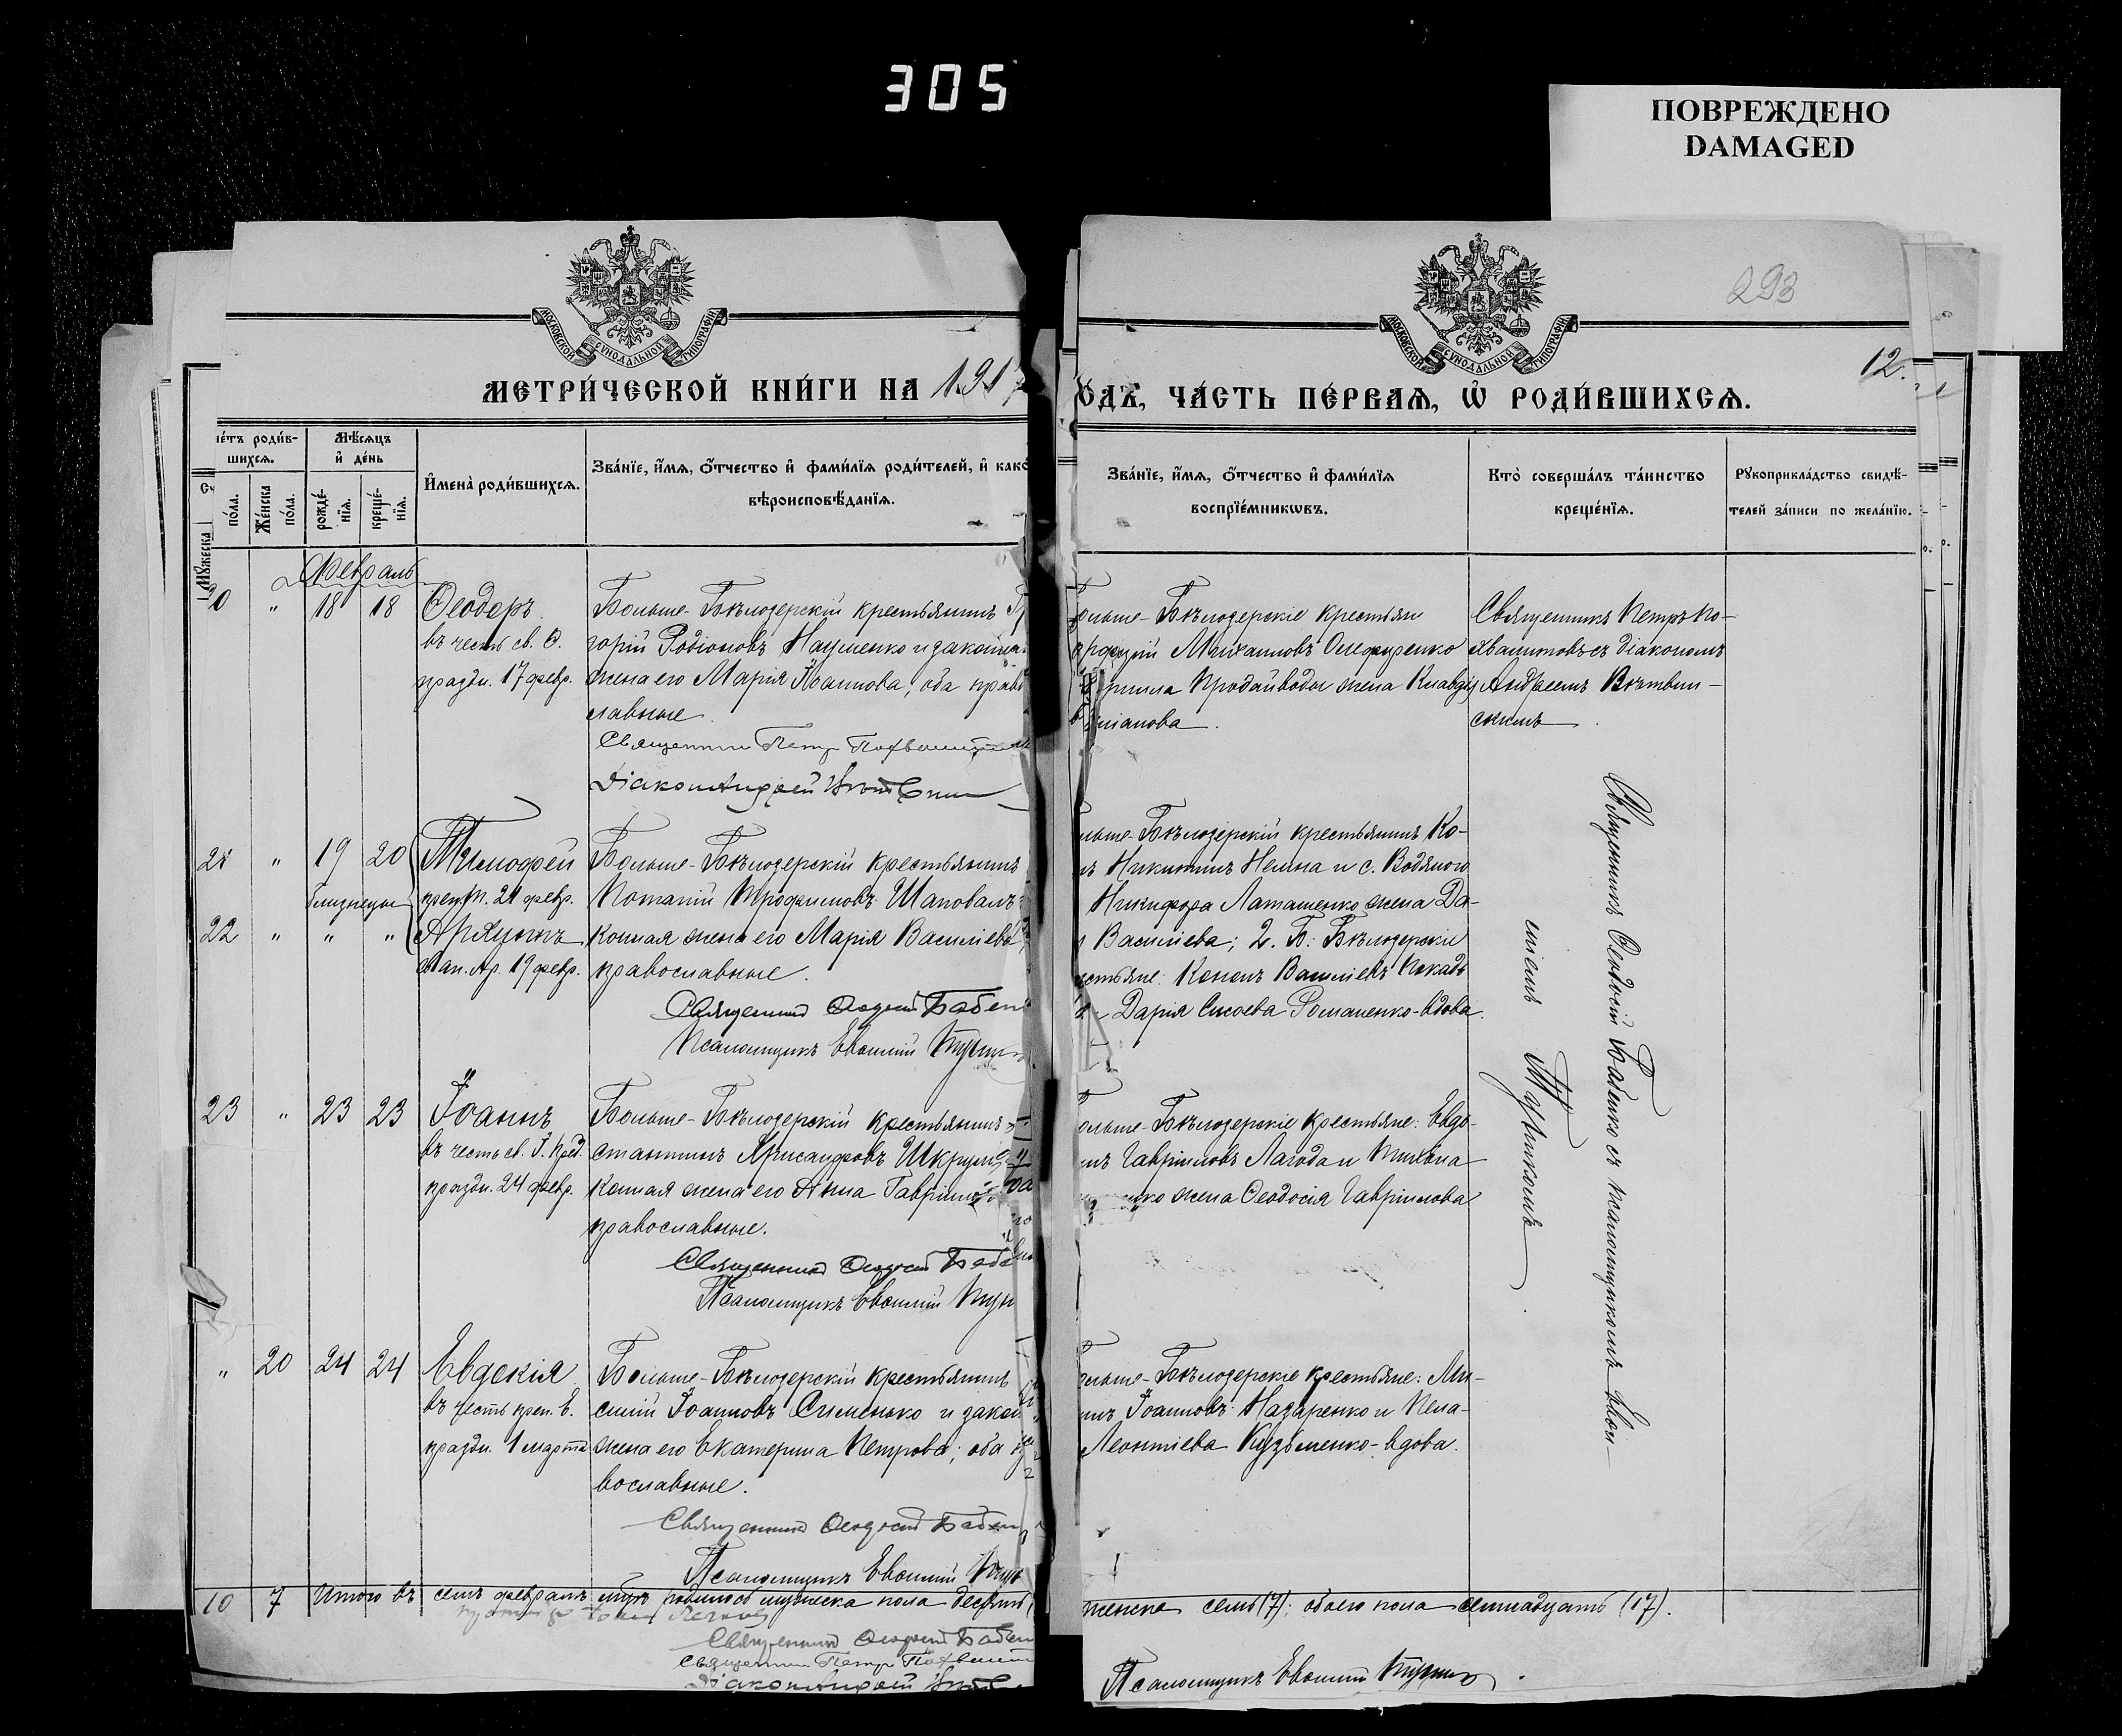 305
ПОВРЕЖДЕНО
DAMAGED
293
МОСКОВСКОЙ СѴНОДАЛЬНОЙ ТИПОГРАФІИ
МОСКОВСКОЙ СѴНОДАЛЬНОЙ ТИПОГРАФІИ
12.
МЕТРИ́ЧЕСКОЙ КНИ́ГИ НА 1917
ОДЪ, ЧА́СТЬ ПЕ́РВАѦ, Ѡ҆ РОДИ́ВШИХСѦ.
Мѣ́сѧцъ
и҆ де́нь
шихсѧ.
по́ла.
Же́нска
по́ла.
рожде́-
нїѧ.
креще́-
нїѧ.
И҆мена̀ роди́вшихсѧ.
Зва́нїе, и҆́мѧ, ѻ҆́тчество и҆ фами́лїѧ роди́телей, и҆ како
вѣроисповѣ́данїѧ.
Зва́нїе, и҆́мѧ, ѻ҆́тчество и҆ фами́лїѧ
воспрїе́мникѡвъ.
Кто̀ соверша́лъ та́инство
креще́нїѧ.
Рꙋкоприкла́дство свидѣ́-
телей за́писи по жела́нїю.
Февраль
20 " 18 18
Ѳеодоръ
въ честь св. Ѳ.
праздн. 17 февр.
Больше-Бѣлозерскій крестьянинъ Гри
горій Родіоновъ Науменко и законная
жена его Марія Іоаннова; оба право
славные.
Священник Петр Похвалитов
Діакон Андрей
ольше-Бѣлозерскіе крестьян
Михаиловъ Онефренко
Продайводы жена Клавдія
Священникъ Петръ По-
хвалитовъ съ діакономъ
Андреемъ Вѣтвин-
скимъ
21 " 19 20
Тимофей
21 февр.
близнецы
22 " " "
Архипъ
св. ап. Ар. 19 февр.
Больше-Бѣлозерскій крестьянинъ
Потапій Трофимовъ Шаповалъ
конная жена его Марія Васильева
православные.
Священник Ѳеодосій Бабен
Псаломщикъ Евѳимій
льше-Бѣлозерскій крестьянинъ Ко-
нъ Никитинъ Нелипа и с. Водяного
Никифора Латашенко жена Да-
Васильева; 2. Б. Бѣлозерскіе
естьяне: Кононъ Васильевъ
Дарія Сисоева Романенко-вдова.
Священникъ Ѳеодосій Бабенко съ псаломщикомъ Евѳи-
міемъ
23 " 23 23
Іоаннъ
въ честь св. І. Пред.
праздн. 24 февр.
Больше-Бѣлозерскій крестьянинъ
стантинъ Александровъ
конная жена его Анна Гавріилова
православные.
Священник Ѳеодосій Баб
Псаломщикъ Евѳимій
ольше-Бѣлозерскіе крестьяне: Евдо-
Гавріиловъ Лагода и Тихона
жена Ѳеодосія Гавріилова
" 20 24 24
Евдокія
въ честь преп. Е.
праздн. 1 марта
Больше-Бѣлозерскій крестьянинъ
Іоанновъ Сименько и закон
жена его Екатерина Петрова; оба пра
вославные.
Священник Ѳеодосій Бабен
Псаломщикъ Евѳимій
ольше-Бѣлозерскіе крестьяне: Ми-
Іоанновъ Назаренко и Пела-
Леонтіева Кузьменко-вдова.
10 7 Итого въ семъ февралѣ мцѣ родилось мужеска пола десять
женска семь (7); обоего пола семнадцать (17).
Священник Ѳеодосій Бабен
Священник Петр Похвалит
Діакон Андрей
Псаломщикъ Евѳимій